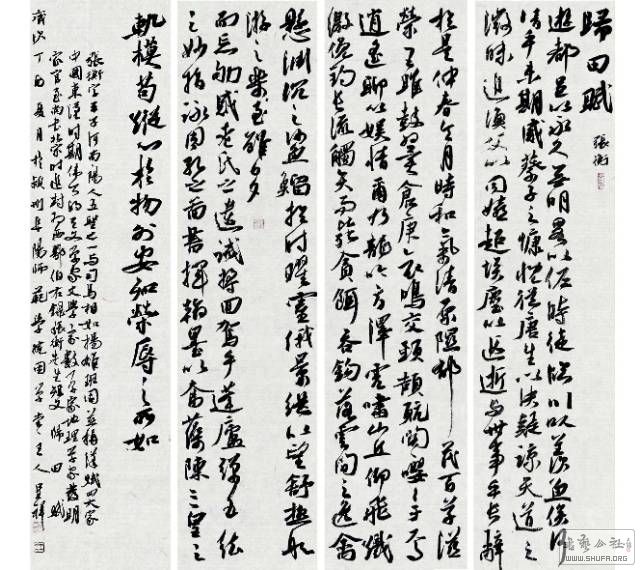 歸田賦 張衡
遊都邑以永久無明略以佐時徒臨川以羨魚俟河
清乎未期感蔡子之慷慨從唐生以決疑諒天道之
微昧追漁父以同嬉超埃塵以遐逝與世事乎長辭
於是仲春令月時和氣清原隰鬱茂百草滋
榮王雎鼓翼倉庚哀鳴交頸頡頏關關嚶嚶於焉
逍遙聊以娛情爾乃龍吟方澤虎嘯山丘仰飛纖
繳俯釣長流觸矢而斃貪餌吞鉤落雲間之逸禽
懸淵沉之鯊鰡於時曜靈俄景繼以望舒極般
遊之至樂雖日夕
而忘劬感老氏之遺誡將迴駕乎蓬廬彈五絃
之妙指詠周孔之圖書揮翰墨以奮藻陳三皇之
軌模苟縱心於物外安知榮辱之所如
張衡字平子河南陽人五聖之一與司馬相如揚雄班固並稱漢賦四大家
中國東漢時期偉大的天文學家文學家數學家地理學家發明
家官至尚書北宋時追封為西鄂伯右錄張衡先生短文歸田賦
歲次丁酉夏月於潁州阜陽師範學院田學堂主人呈祥
書藝公社
WWW.SHUFA.ORG